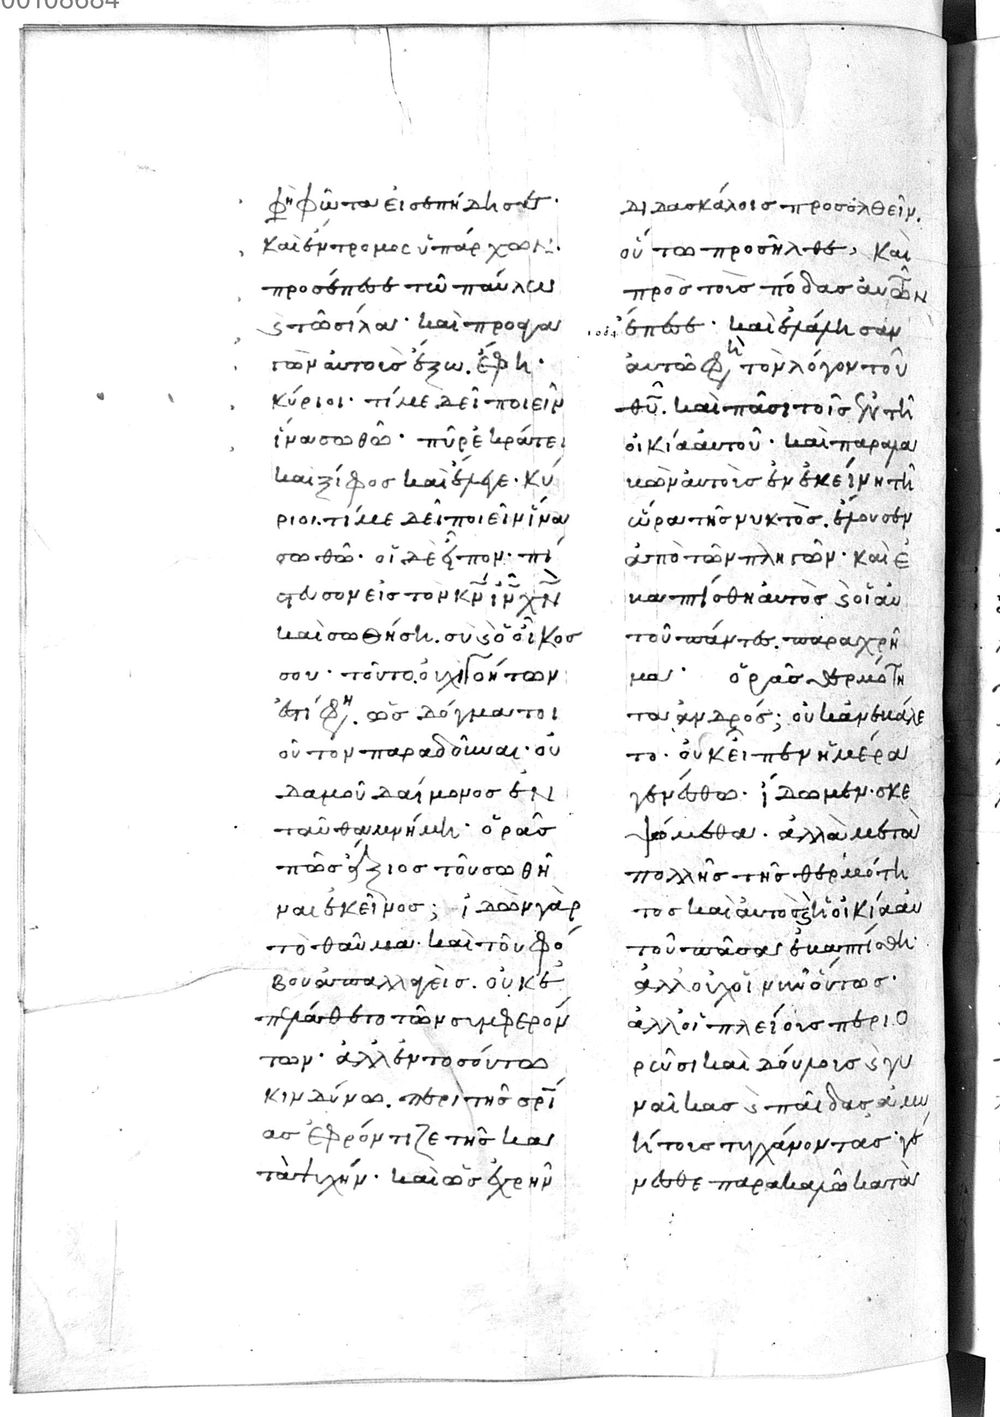 00108684
φησὶ φῶτα εἰσεπήδησεν·
καὶ ἔντρομος ὑπάρχων.
προσέπεσε τῶ παύλω
ϛ τῶ σίλα· καὶ προαγα
γὼν αὐτοὺς ἔξω. ἔφη·
κύριοι· τί με δεῖ ποιεῖν
ἵνα σωθῶ· πῦρ ἐκράτει
καὶ ξίφος καὶ ἔλεγε· κύ
ριοι. τί με δεῖ ποιεῖν ἵνα
σωθῶ· οἱ δὲ εἶπον· πί
στευσον εἰς τὸν κν̄ ιν̄ χν̄
καὶ σωθήση. σὺ ϛ ὁ οἶκος
σου· τοῦτο. οὐχὶ γοήτων
ἐστί φησι. ὡς δόγμα τοι
οῦτον παραδοῦναι· οὐ
δαμοῦ δαίμονος ἐν
ταῦθα μνήμη· ὁρᾶς
πῶς ἄξιος τοῦ σωθῆ
ναι ἐκεῖνος; ἰδὼν γὰρ
τὸ θαῦμα· καὶ τοῦ φό
βου ἀπαλλαγεὶς. οὐκ ἐ
πελάθετο τῶν συμφερόν
των· ἀλλ' ἐν τοσούτω
κινδύνω. περὶ τῆς σρί
ας ἐφρόντιζε τῆς κα
τὰ ψυχήν· καὶ ὡς ἐχρῆν
διδασκάλοις προσελθεῖν.
οὕτω προσῆλθε, καὶ
πρὸς τοὺς πόδας αὐτῶν
ἔπεσε· καὶ ἐλάλησαν
αὐτῶ φησι τὸν λόγον τοῦ
θῡ. καὶ πᾶσι τοῖς ἐν τῆ
οἰκία αὐτοῦ· καὶ παραλα
βὼν αὐτοὺς ἐν ἐκείνη τῆ
ὥρα τῆς νυκτὸς. ἔλουσεν
ἀπὸ τῶν πληγῶν· καὶ ἐ
βαπτίσθη αὐτὸς ϛ οἱ αὐ
τοῦ πάντες. παραχρῆ
μα· ὁρᾶς θερμότη
τα ἀνδρός; οὐκ ἀνεβάλε
το· οὐκ εἶπεν ἡμέρα
γενέσθω· ἴδωμεν· σκε
ψώμεθα· ἀλλὰ μετὰ
πολλῆς τῆς θερμότη
τος καὶ αὐτὸς ϛ ἡ οἰκία αὐ
τοῦ πᾶσα ἐβαπτίσθη·
ἀλλ' οὐχ οἱ νῦν οὕτως·
ἀλλ' οἱ πλείους περιο
ρῶσι καὶ δούλους ϛ γυ
ναῖκας ϛ παῖδας ἀμυ
ήτους τυγχάνοντας· γέ
νεσθε παρακαλῶ κατὰ